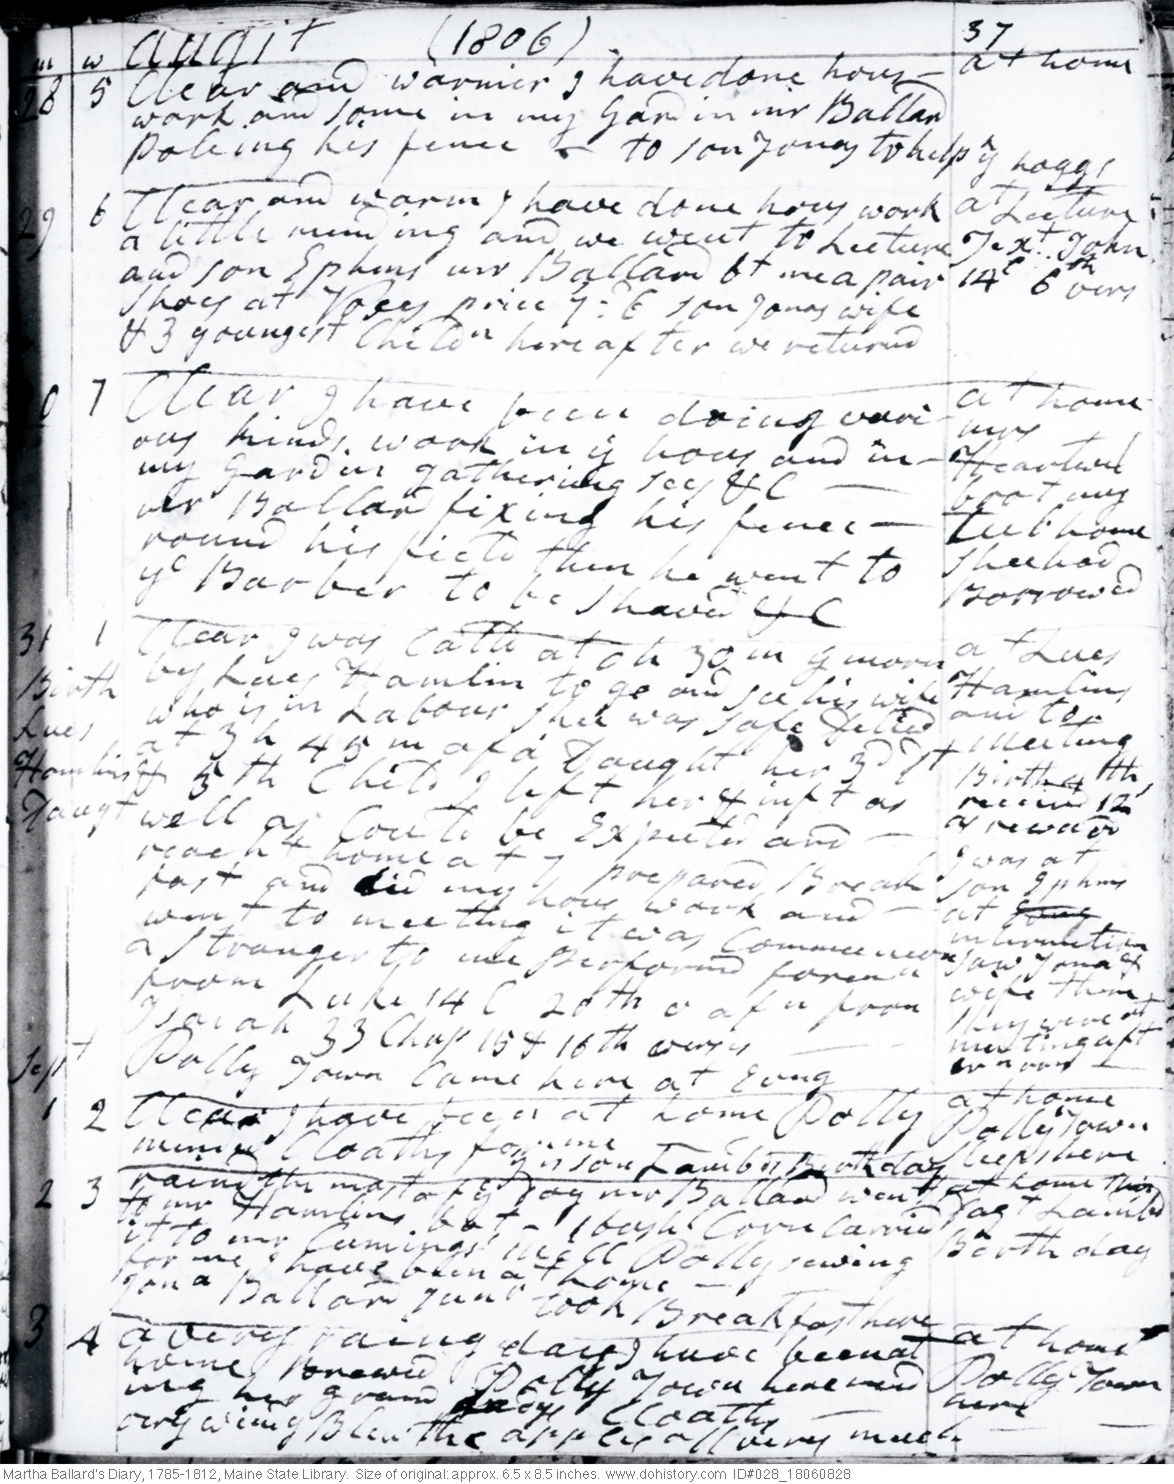 m w august (1806) 37
28 5 Clear and warmer I have done hous= at home
work and some in my Gardin mr Ballard
Poleing his fence - to son Jonas to help ye hoggs
29 6 Clear and warm I have done hous work at Lecture
a little mending and we went to Lecture Text John
and son Ephms mr Ballard bt me a pair 14C 6th vers
shoes at price 7:6 son Jonas wife
& 3 youngest Childn here after we returnd
0 7 Clear I have been doing vari= at home
ous kinds work in ye hous and in= mrs
my Gardin gathering sees &C - Heartwel
mr Ballard fixing his fence - brot my
round his field then he went to Tub home
ye Barber to be shaved &C shee had
Borrowed
31 1 Clear I was Calld at 0h 30m morn at Lues
Birth by Lues Hamlin to go and see his wife Hamlins
Lues who is in Labour shee was safe Delivd and to
Hamlins at 3h 45m of a Daught her 3d Dt meeting
Daugt & 5th Child I left her & inft as Birth 4th
well as Could be Expected and - receivd 12/
reacht home at 7 prepared Break as reward
fast and did my hous work and - I was at
went to meeting it was Communion son Ephms
a Stranger to me Performd foren at
from Luke 14 C 20th v afn from intermition
Isaiah 33 Chap 15 & 16th verses saw Jona &
Polly Town Came here at Evng wife there
they were at
meeting aft
ernoon -
Sept
1 2 Clear I have been at home Polly at home
mending Cloaths for me is son Lamberts Birth day Polly Town
sleeps here
2 3 raind the most of ye Day mr Ballard went at home this
to mr Hamlins bot 1 bush Corn Carried Day Lambd
it to mr Cumings mill Polly sewing Birth day
for me I have been at home -
Jona Ballard Junr took Breakfast here
3 4 a very rainy day I have been at at home
home Brewed Polly Town here mend Polly Town
ing her grand Cloaths - here -
very windy Blew the apples off very much
Martha Ballard's Diary, 1785-1812, Maine State Library. Size of original: approx. 6.5 x 8.5 inches. www.dohistory.com ID#028_18060828